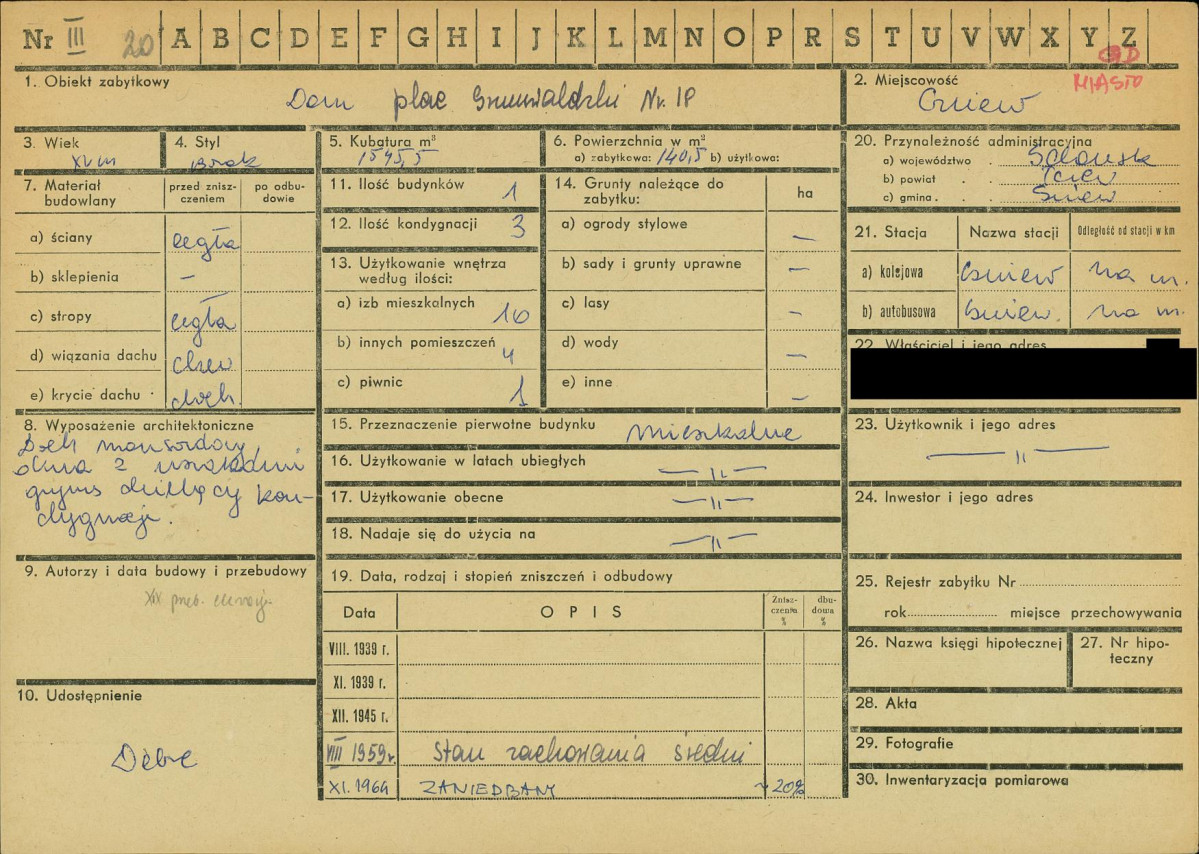 Nr III 20 A B C D E F G H I J K L M N O P R S T U V W X Y Z
GD
MIASTO
1. Obiekt zabytkowy
Dom plac Grunwaldzki Nr. 18
2. Miejscowość
Gniew
3. Wiek
XVIII
4. Styl
Brak
5. Kubatura m³
1545,5
6. Powierzchnia w m²
a) zabytkowa: 140,5 b) użytkowa:
7. Materiał budowlany
przed zniszczeniem
po odbudowie
a) ściany cegła
b) sklepienia –
c) stropy cegła
d) wiązania dachu drew
e) krycie dachu dach.
8. Wyposażenie architektoniczne
Dach mansardowy,
okna z
gzyms dzielący kon-
dygnacje.
9. Autorzy i data budowy i przebudowy
XIX przeb. elewacji
10. Udostępnienie
Dobre
11. Ilość budynków 1
12. Ilość kondygnacji 3
13. Użytkowanie wnętrza
według ilości:
a) izb mieszkalnych 10
b) innych pomieszczeń 4
c) piwnic 1
14. Grunty należące do
zabytku:
ha
a) ogrody stylowe –
b) sady i grunty uprawne –
c) lasy –
d) wody –
e) inne –
15. Przeznaczenie pierwotne budynku mieszkalne
16. Użytkowanie w latach ubiegłych –"–
17. Użytkowanie obecne –"–
18. Nadaje się do użycia na –"–
19. Data, rodzaj i stopień zniszczeń i odbudowy
Data
OPIS
Zniszczenia %
dbudowa %
VIII. 1939 r.
XI. 1939 r.
XII. 1945 r.
VIII 1959 r. Stan zachowania średni
XI. 1964 ZANIEDBANY ~20%
20. Przynależność administracyjna
a) województwo . Gdańsk
b) powiat . . Tczew
c) gmina . . Gniew
21. Stacja
Nazwa stacji
Odległość od stacji w km
a) kolejowa Gniew na m.
b) autobusowa Gniew. na m.
22. Właściciel i jego adres
23. Użytkownik i jego adres
–"–
24. Inwestor i jego adres
25. Rejestr zabytku Nr
rok miejsce przechowywania
26. Nazwa księgi hipotecznej
27. Nr hipo-
teczny
28. Akta
29. Fotografie
30. Inwentaryzacja pomiarowa